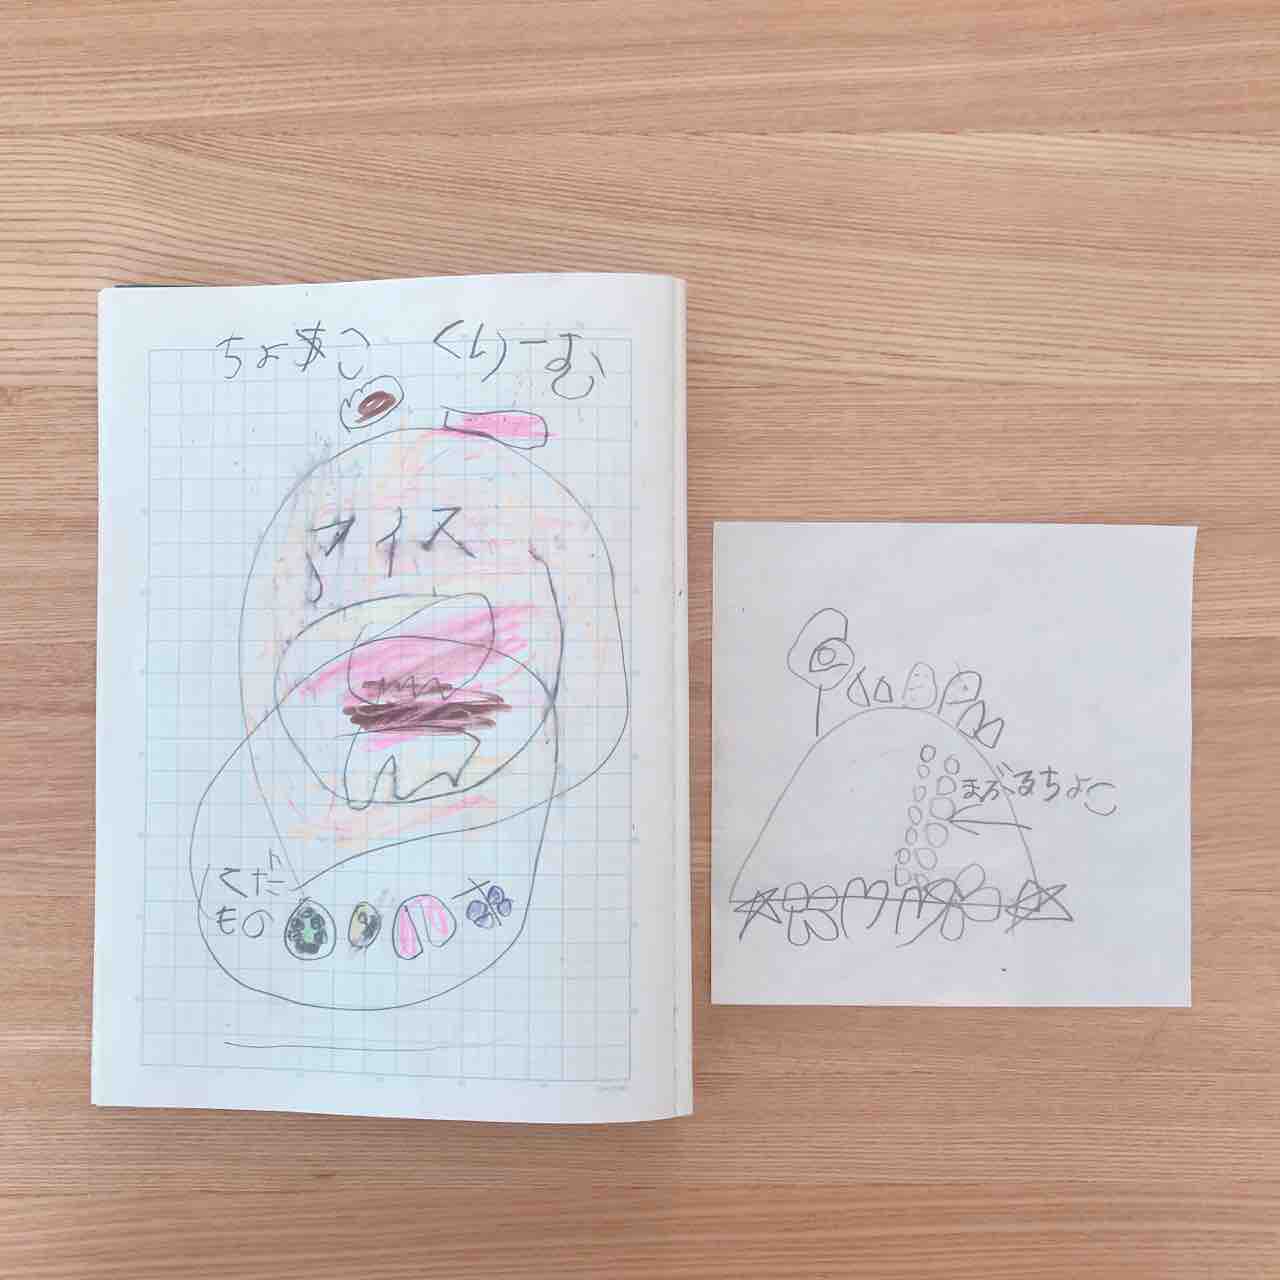 ちょこ くりーむ
アイス
くだ
もの
まぶるちょこ